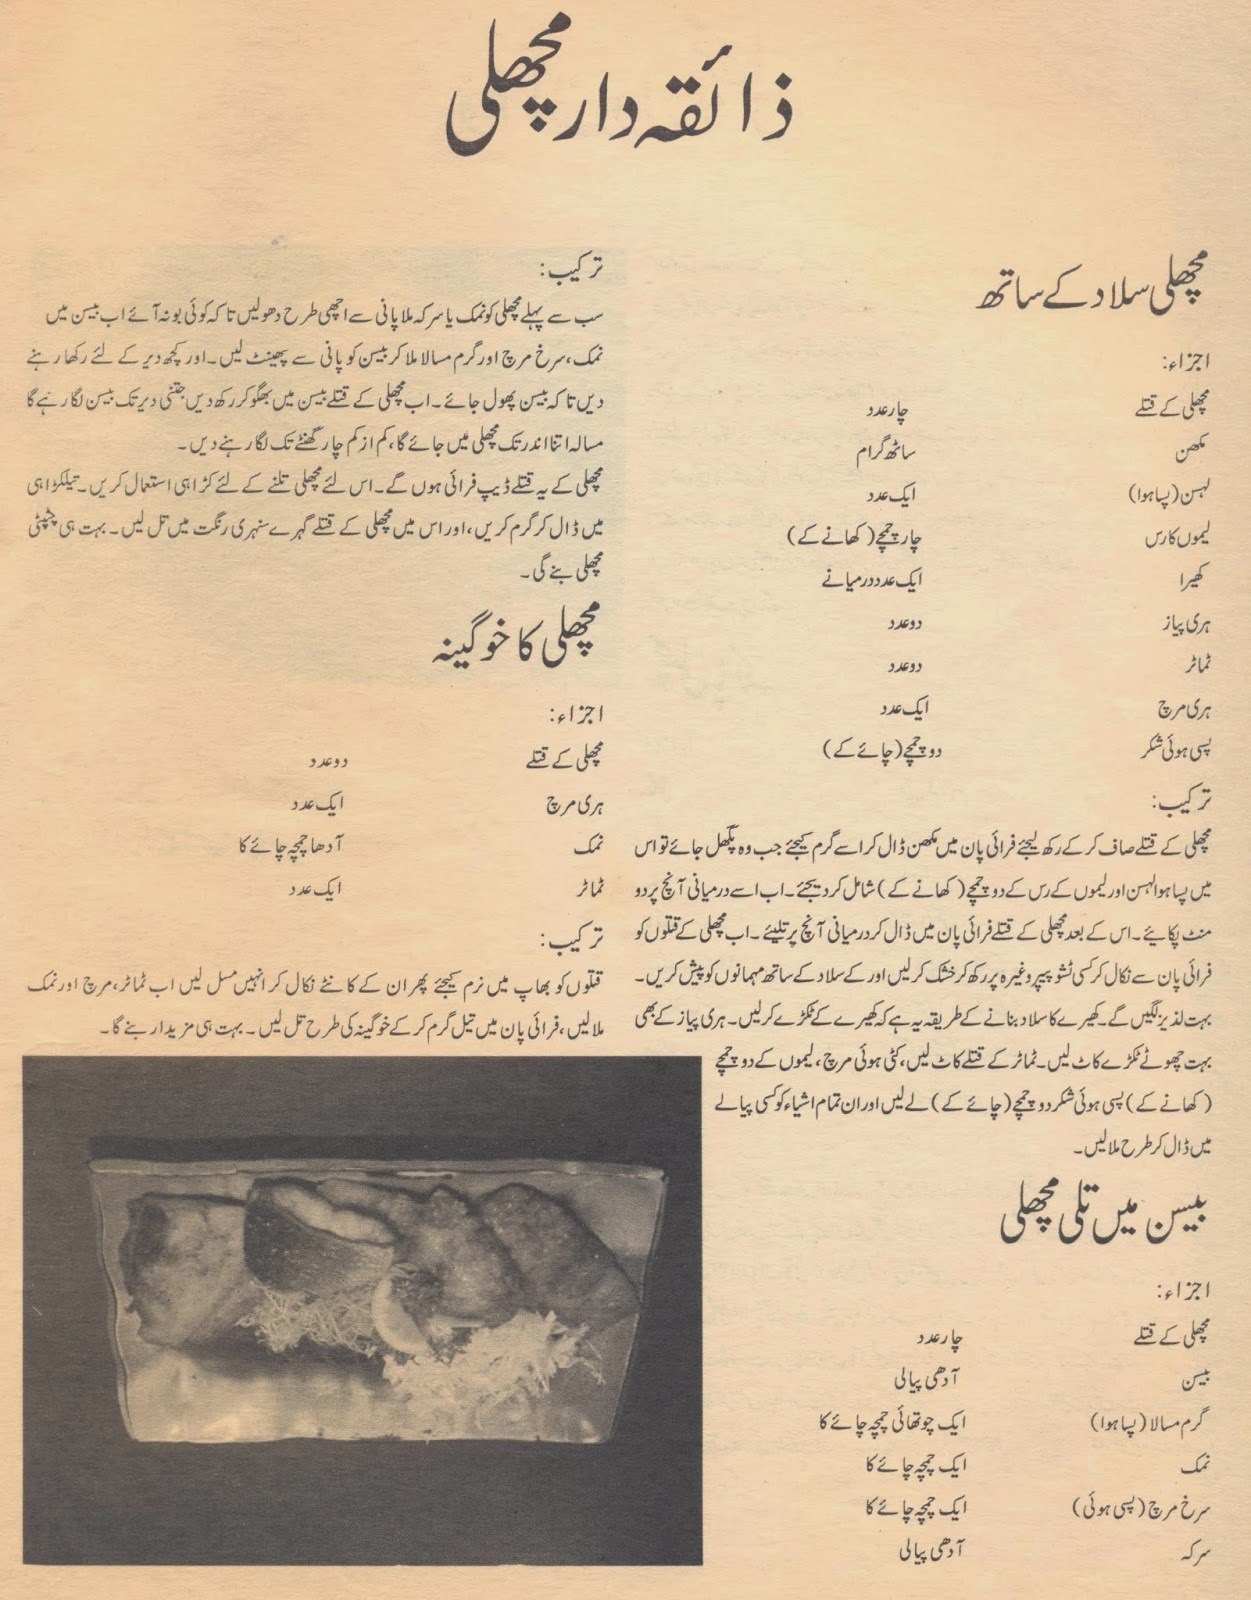 ذائقہ دار مچھلی
مچھلی سلاد کے ساتھ
اجزاء:
مچھلی کے قتلے چار عدد
مکھن ساٹھ گرام
لہسن (پسا ہوا) ایک عدد
لیموں کا رس چار چمچے (کھانے کے)
کھیرا ایک عدد درمیانے
ہری پیاز دو عدد
ٹماٹر دو عدد
ہری مرچ ایک عدد
پسی ہوئی شکر دو چمچے (چائے کے)
ترکیب:
مچھلی کے قتلے صاف کر کے رکھ لیجئے فرائی پان میں مکھن ڈال کر اسے گرم کیجئے جب وہ پگھل جائے تو اس
میں پسا ہوا لہسن اور لیموں کے رس کے دو چمچے (کھانے کے) شامل کر دیجئے۔ اب اسے درمیانی آنچ پر دو
منٹ پکائیے۔ اس کے بعد مچھلی کے قتلے فرائی پان میں ڈال کر درمیانی آنچ پر تلیئے۔ اب مچھلی کے قتلوں کو
فرائی پان سے نکال کر کسی ٹشو پیپر وغیرہ پر رکھ کر خشک کر لیں اور کے سلاد کے ساتھ مہمانوں کو پیش کریں۔
بہت لذیز لگیں گے۔ کھیرے کا سلاد بنانے کے طریقہ یہ ہے کہ کھیرے کے ٹکڑے کر لیں۔ ہری پیاز کے بھی
بہت چھوٹے ٹکڑے کاٹ لیں۔ ٹماٹر کے قتلے کاٹ لیں، کٹی ہوئی مرچ، لیموں کے دو چمچے
(کھانے کے) پسی ہوئی شکر دو چمچے (چائے کے) لے لیں اور ان تمام اشیاء کو کسی پیالے
میں ڈال کر طرح ملا لیں۔
بیسن میں تلی مچھلی
اجزاء:
مچھلی کے قتلے چار عدد
بیسن آدھی پیالی
گرم مسالا (پسا ہوا) ایک چوتھائی چمچہ چائے کا
نمک ایک چمچہ چائے کا
سرخ مرچ (پسی ہوئی) ایک چمچہ چائے کا
سرکہ آدھی پیالی
ترکیب:
سب سے پہلے مچھلی کو نمک یا سرکہ ملا پانی سے اچھی طرح دھو لیں تا کہ کوئی بو نہ آئے اب بیسن میں
نمک، سرخ مرچ اور گرم مسالا ملا کر بیسن کو پانی سے پھینٹ لیں۔ اور کچھ دیر کے لئے رکھا رہنے
دیں تا کہ بیسن پھول جائے۔ اب مچھلی کے قتلے بیسن میں بھگو کر رکھ دیں جتنی دیر تک بیسن لگا رہے گا
مسالہ اتنا اندر تک مچھلی میں جائے گا، کم از کم چار گھنٹے تک لگا رہنے دیں۔
مچھلی کے یہ قتلے ڈیپ فرائی ہوں گے۔ اس لئے مچھلی تلنے کے لئے کڑاہی استعمال کریں۔ تیل کڑاہی
میں ڈال کر گرم کریں، اور اس میں مچھلی کے قتلے گہرے سنہری رنگت میں تل لیں۔ بہت ہی چٹپٹی
مچھلی بنے گی۔
مچھلی کا خوگینہ
اجزاء:
مچھلی کے قتلے دو عدد
ہری مرچ ایک عدد
نمک آدھا چمچہ چائے کا
ٹماٹر ایک عدد
ترکیب:
قتلوں کو بھاپ میں نرم کیجئے پھر ان کے کانٹے نکال کر انہیں مسل لیں اب ٹماٹر، مرچ اور نمک
ملا لیں، فرائی پان میں تیل گرم کر کے خوگینہ کی طرح تل لیں۔ بہت ہی مزیدار بنے گا۔